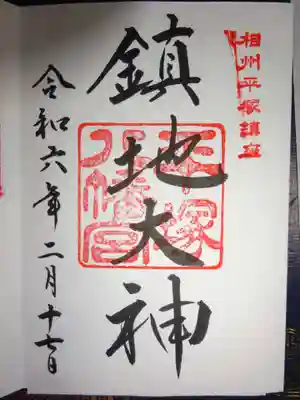 相州平塚鎮座
鎮地大神
平塚八幡宮
令和六年二月十七日